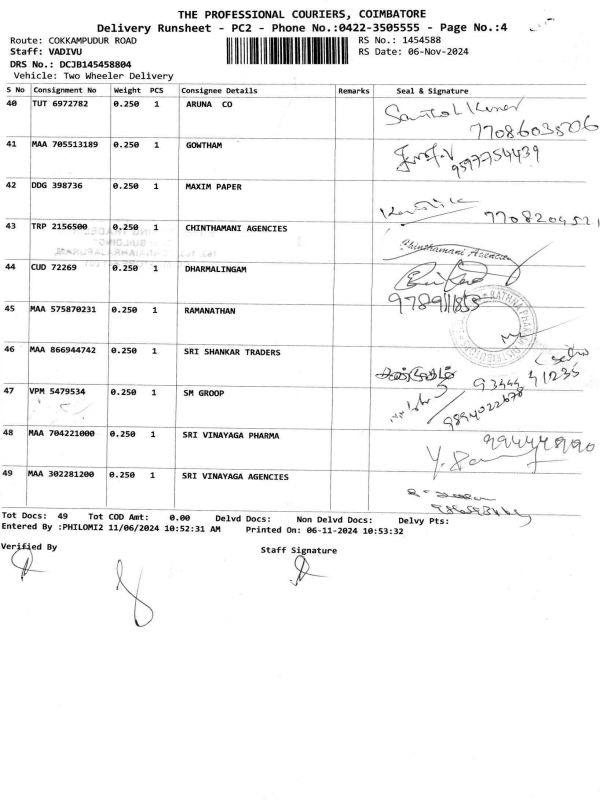 THE PROFESSIONAL COURIERS, COIMBATORE
Delivery Runsheet - PC2 - Phone No.:0422-3505555 - Page No.:4
Route: COKKAMPUDUR ROAD RS No.: 1454588
Staff: VADIVU RS Date: 06-Nov-2024
DRS No.: DCJB145458804
Vehicle: Two Wheeler Delivery
S No Consignment No Weight PCS Consignee Details Remarks Seal & Signature
40 TUT 6972782 0.250 1 ARUNA CO
41 MAA 705513189 0.250 1 GOWTHAM
9597754439
42 DDG 398736 0.250 1 MAXIM PAPER
43 TRP 2156500 0.250 1 CHINTHAMANI AGENCIES
Chinthamani Agencies
44 CUD 72269 0.250 1 DHARMALINGAM
45 MAA 575870231 0.250 1 RAMANATHAN
46 MAA 866944742 0.250 1 SRI SHANKAR TRADERS
47 VPM 5479534 0.250 1 SM GROOP
9894022678
48 MAA 704221000 0.250 1 SRI VINAYAGA PHARMA
49 MAA 302281200 0.250 1 SRI VINAYAGA AGENCIES
Tot Docs: 49 Tot COD Amt: 0.00 Delvd Docs: Non Delvd Docs: Delvy Pts:
Entered By :PHILOMI2 11/06/2024 10:52:31 AM Printed On: 06-11-2024 10:53:32
Verified By Staff Signature